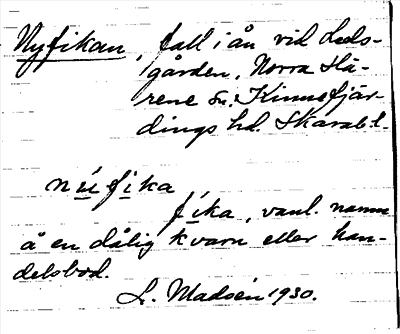 Nyfikan, fall i ån vid Luds-
gården, Norra Hä-
rene sn. Kinnefjär-
dings hd. Skarab. l.
núfika
fíka, vanl. namn
å en dålig kvarn eller han-
delsbod.
L. Madsén 1930.